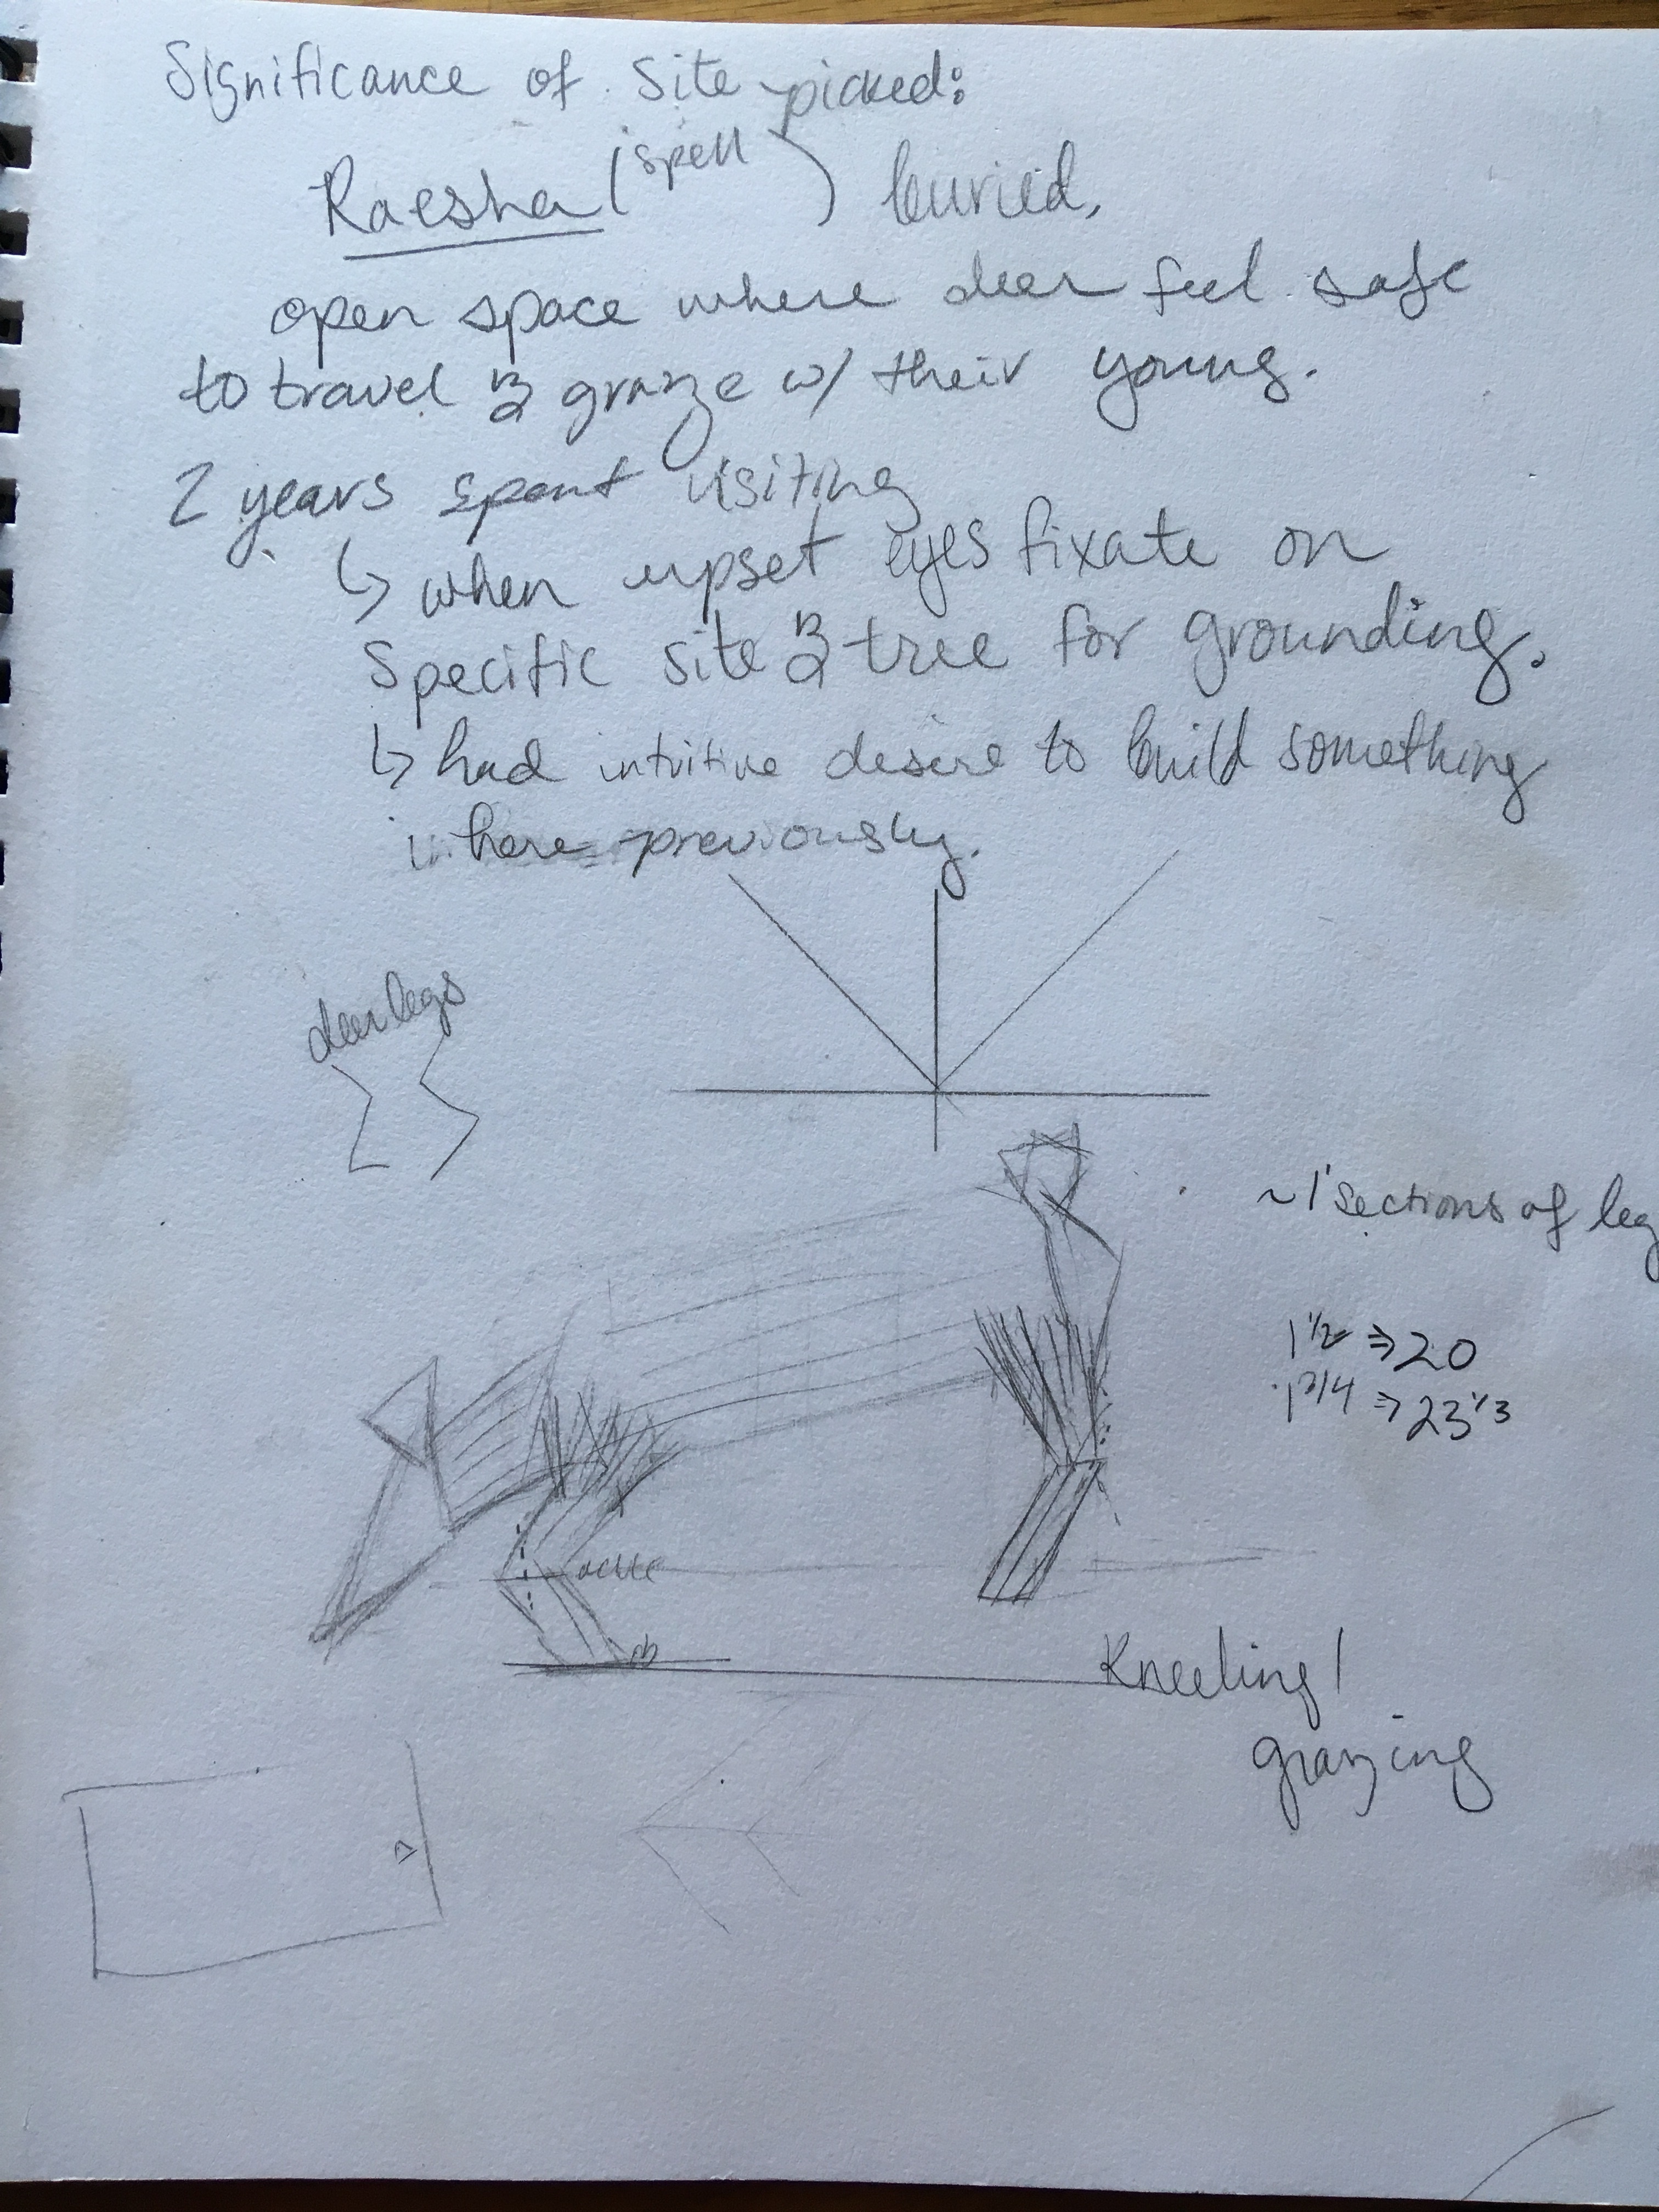 Significance of Site picked:
Raesha (spell) buried,
open space where deer feel safe
to travel & graze w/ their young.
2 years spent visiting
↳ when upset eyes fixate on
specific site & tree for grounding.
↳ had intuitive desire to build something
here previously.
deer legs
~1' sections of leg
1 1/2 ⇒ 20
1 3/4 ⇒ 23 1/3
Kneeling/
grazing